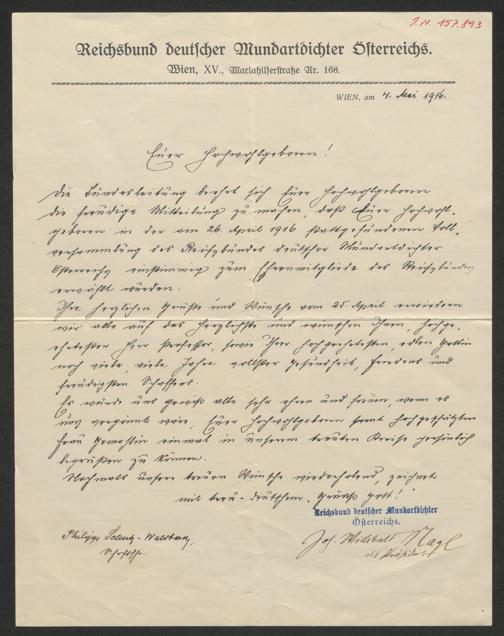 J.N. 157.893
Reichsbund deutscher Mundartdichter Österreichs.
Wien, XV., Mariahilferstraße Nr. 168.
WIEN, am 4. Mai 1916.
Euer Hochwohlgeboren!
Die Bundesleitung beehrt sich Euer Hochwohlgeboren
die freudige Mitteilung zu machen, daß Euer Hochwohl-
geboren in der am 26. April 1916 stattgefundenen Voll-
versammlung des Reichsbundes deutscher Mundartdichter
Österreichs einstimmig zum Ehrenmitgliede des Reichsbundes
erwählt wurden.
Ihre herzlichen Grüße und Wünsche vom 25. April erwidern
wir alle auf das Herzlichste und wünschen Ihnen, hochge-
ehrtester Herr Professor, sowie Ihrer hochgeehrtesten, edlen Gattin
noch viele, viele Jahre vollster Gesundheit, Friedens und
freudigsten Schaffens.
Es würde uns gewiß alle sehr ehren und freuen, wenn es
uns vergönnt wäre, Euer Hochwohlgeboren samt hochgeschätzter
Frau Gemahlin einmal in unserem trauten Kreise persönlich
begrüßen zu können.
Nochmals unsere treuen Wünsche wiederholend, zeichnet
mit treu-deutschem „Grüß Gott!"
Reichsbund deutscher Mundartdichter
Österreichs.
Philipp
Joh. Willibald Nagl
als Präsident